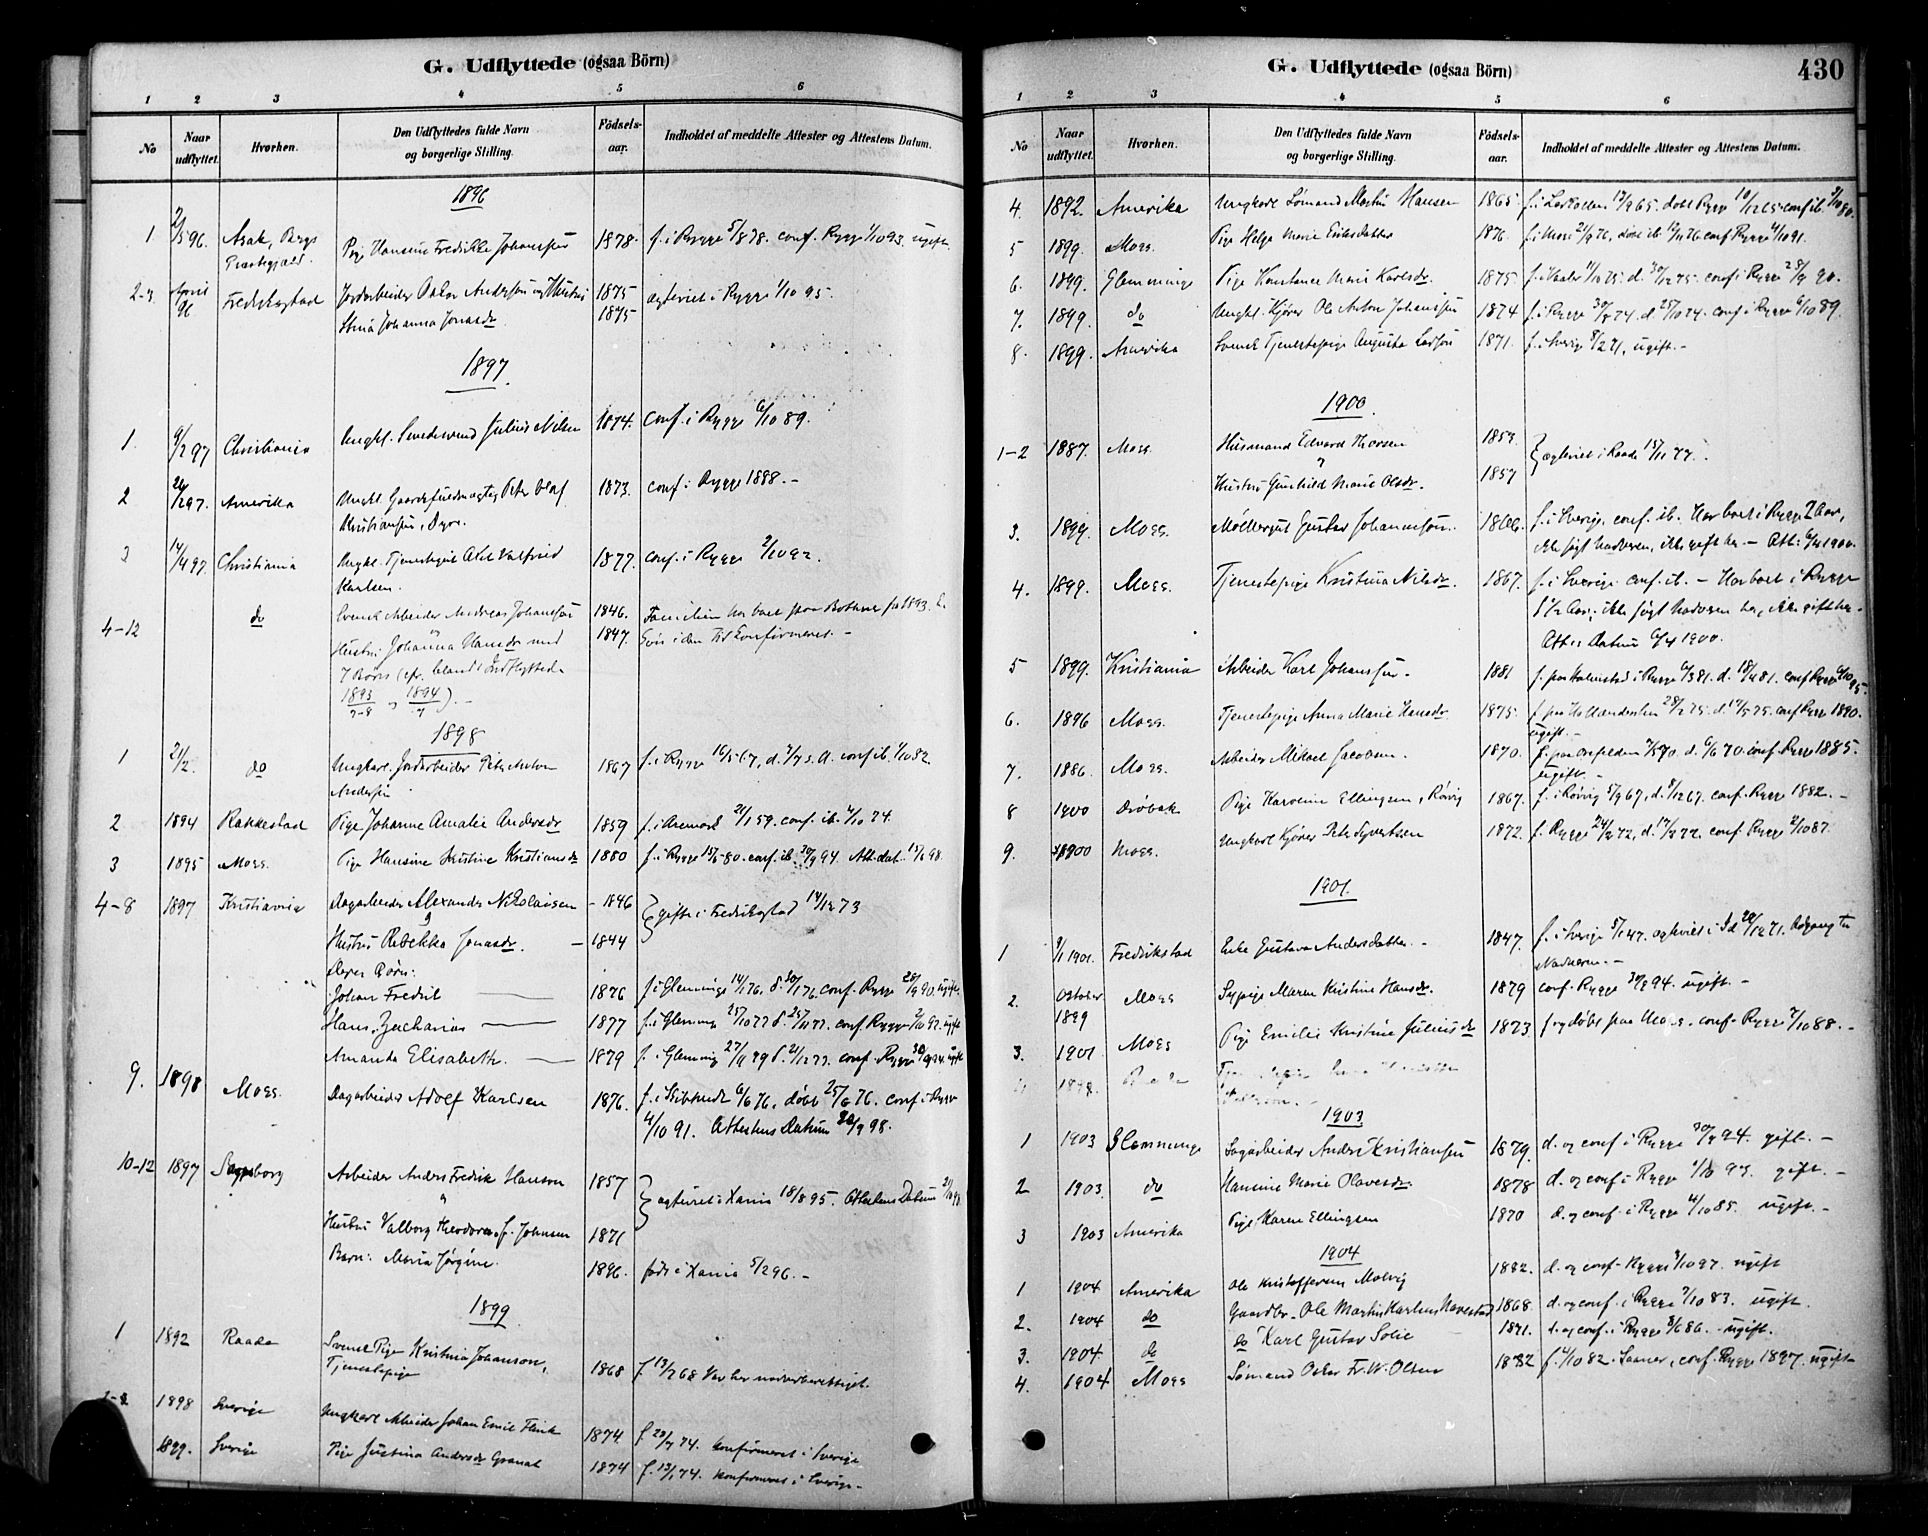 G. Udflyttede (ogsaa Börn)
1 2 3 4 5 6
No Naar udflyttet. Hvorhen. Den Udflyttedes fulde Navn og borgerlige Stilling. Födsels-aar. Indholdet af meddelte Attester og Attestens Datum.
1896
1 2/5 96. Asak, Bergs Pige Hansine Fredrikke Johanssen 1878. f. i Rygge 5/8 78. conf. Rygge 1/10 93. ugift
Præstegjæld.
2-3 April 96 Fredrikstad Jordarbeider Oskar Anderssen og Hustru 1875 ægteviet i Rygge 1/10 95.
Stina Johanna Jonasdr 1875
1897
1. 9/2 97 Christiania Ungkl. Julius Nilsen 1874. conf. i Rygge 6/10 89.
2 24/2 97. Amerika Ungkl. Peter Olaf 1873. conf. i Rygge 1888. -
Kristiansen, Dyre.
3 14/4 97. Christiania Ungkl. Tjenestegut Axel Valfried 1877. conf. i Rygge 2/10 92.
Karlsen.
4-12 do Svensk Arbeider Andreas Johanssen 1846. Familien har boet paa siden 1893. En
Hustru Johanna Hansdr med 1847. Søn i den Tid Konfirmeret. -
7 Børn (cfr. blandt Indflyttede
1893 7-8 og 1894 7). -
1898
1 21/2. do Ungkarl. Jordarbeider Peter Anton 1867 f. i Rygge 16/5 67, d. 7/7 s. A. conf. ib. 1/10 82.
Andersen
2 1894 Rakkestad Pige Johanne Amalie Andersdr 1859 f. i Aremark 21/1 59. conf. ib. 4/10 74.
3 1895 Moss. Pige Hansine Kristine Kristiansdr 1880 f. i Rygge 80. conf. ib. 30/9 94. Att. dat. 98.
4-8 1897 Kristiania Dagarbeider Alexander Nikolaisen - 1846 gifte i Fredrikstad 14/12 73
Hustru Rebekka Jonasdr. - 1844
Deres Børn:
Johan Fredrik 1876 f. i Glemminge 14/1 76. d. 30/1 76. conf. Rygge 28/9 90. ugift.
Hans Zacharias 1877 f. i Glemming 25/10 77 d. 25/11 77. conf. Rygge 2/10 92. ugift
Amanda Elisabeth. 1879 f. i Glemming 27/11 79 d. 21/12 79. conf. Rygge 30/9 94. ugift
9. 1898 Moss. Dagarbeider Adolf Karlsen 1876. f. i Skibtvedt 6/6 76, døbt 25/6 76. conf. i Rygge
4/10 91. Attestens Datum 30/9 98.
10-12 1897 Sarpsborg Arbeider Anders Fredrik Hansen 1857 ægteviet i Xania 18/8 95. Attestens Datum
Hustru Valborg Theodora f. Johnsen 1871
Barn: Maria Jørgine. 1896. født i Xania 5/2 96. -
1899
1 1892 Raade Svensk Pige Kristina Johanson, 1868 f. 13/2 68 Var her nadverberettiget.
Tjenestepige
1898 Sverige Ungkarl Arbeider Johan Emil Flink 1874. f. 20/4 74. konfirmeret i Sverige
1899. Sverige Pige Justina Andersdr Granat 1874 f. 13/1 74. konfirmeret i Sverige -
G. Udflyttede (ogsaa Börn) 430
1 2 3 4 5 6
No Naar udflyttet. Hvorhen. Den Udflyttedes fulde Navn og borgerlige Stilling. Födsels-aar. Indholdet af meddelte Attester og Attestens Datum.
4. 1892. Amerika Ungkarl Sømand Martin Hansen 1865. f. i Larkollen 17/9 65. døbt Rygge 10/12 65. conf. ib. 3/10 80.
5 1899. Moss. Pige Helga Marie Eriksdatter 1876. f. i Moss 21/9 76, døbt ib. 12/11 76. conf. Rygge 4/10 91.
6. 1899. Glemminge Pige Konstance Marie Karlsdr. 1875. f. i Vaaler 11/10 75. d. 30/12 75. conf. i Rygge 28/9 90.
7. 1899. do Ungkl. Kjører Ole Anton Johanssen 1874 f. i Rygge 30/8 74. d. 25/10 74. conf. i Rygge 6/10 89.
8. 1899. Amerika Svensk Tjenestepige Augusta Larsson 1871. f. i Sverige 8/2 71, ugift. -
1900.
1-2 1887. Moss. Husmand Edvard Thorsen 1853. ægteviet i Raade 15/11 77.
Hustru Gunhild Marie Olsdr. 1857
3. 1899. Moss. Møllergut Gustav Johannessen. 1866. f. i Sverige, conf. ib. Har boet i Rygge 2 Aar,
ikke søgt Nadveren, ikke gift her. - Att: 6/4 1900.
4. 1899. Moss. Tjenestepige Kristina Nilsdr. 1867. f. i Sverige conf. ib. - Har boet i Rygge
8 1/2 Aar, ikke søgt Nadveren her, ikke gift her. -
Attes Datum 6/4 1900.
5 1899. Kristiania Arbeider Karl Johanssen. 1881 f. paa Halmstad i Rygge 6/3 81. d. 18/4 81. conf. Rygge 6/10 95.
6. 1896 Moss. Tjenestepige Anna Marie Hansdr. 1875. f. paa 28/2 75. d. 17/5 75. conf. Rygge 1890.
ugift. -
7. 1886. Moss. Arbeider Mikael Jacobsen. 1870. f. paa 70. d. 6/6 70. conf. Rygge 1885.
ugift. -
8 1900 Drøbak Pige Karoline Ellingsen, Rørvig 1867. f. i Rørvig 5/9 67, d. 8/12 67. conf. Rygge 1882. -
9. 1900 Moss. Ungkarl Kjører Peter Syvertsen 1872. f. Rygge 24/2 72, d. 17/3 72. conf. Rygge 2/10 87.
1901.
1 9/1 1901. Fredrikstad Enke Gustava Andersdatter. - 1847. f. i Sverige 5/1 47. ægteviet i Id 28/12 71. Adgang til
Nadveren. -
2. Oktober 1899 Moss Sypige Maren Kristine Hansdr. 1879 conf. Rygge 30/9 94. ugift. -
3. 1901 Moss Pige Emilie Kristine Juliusdr 1873 f. og døbt paa Moss. conf. Rygge 7/10 88. -
1903.
1 1903 Glemminge Sagarbeider Andr. Kristiansen 1879. d. og conf. i Rygge 30/9 94. gift. -
2 1903. do Hansine Marie Olavesdr. 1878 d. og conf. i Rygge 1/10 93. gift. -
3 1903 Amerika Pige Karen Ellingsen 1870 d. og conf. i Rygge 4/10 85. ugift. -
1904
1 1904 Amerika Ole Kristoffersen Molvig 1882. d. og conf. Rygge 3/10 97. ugift
2. 1904 do Gaardbr. Ole Martin Karlsen Navestad 1868. d. og conf. i Rygge 7/10 83. ugift.
3. 1904. do do Karl Gustav Solie 1871. d. og conf. i Rygge 86. - ugift.
4. 1904 Moss Sømand Oskar Fr. W. Olsen 1882 f. 4/10 82. Saaner, conf. Rygge 1897. ugift -